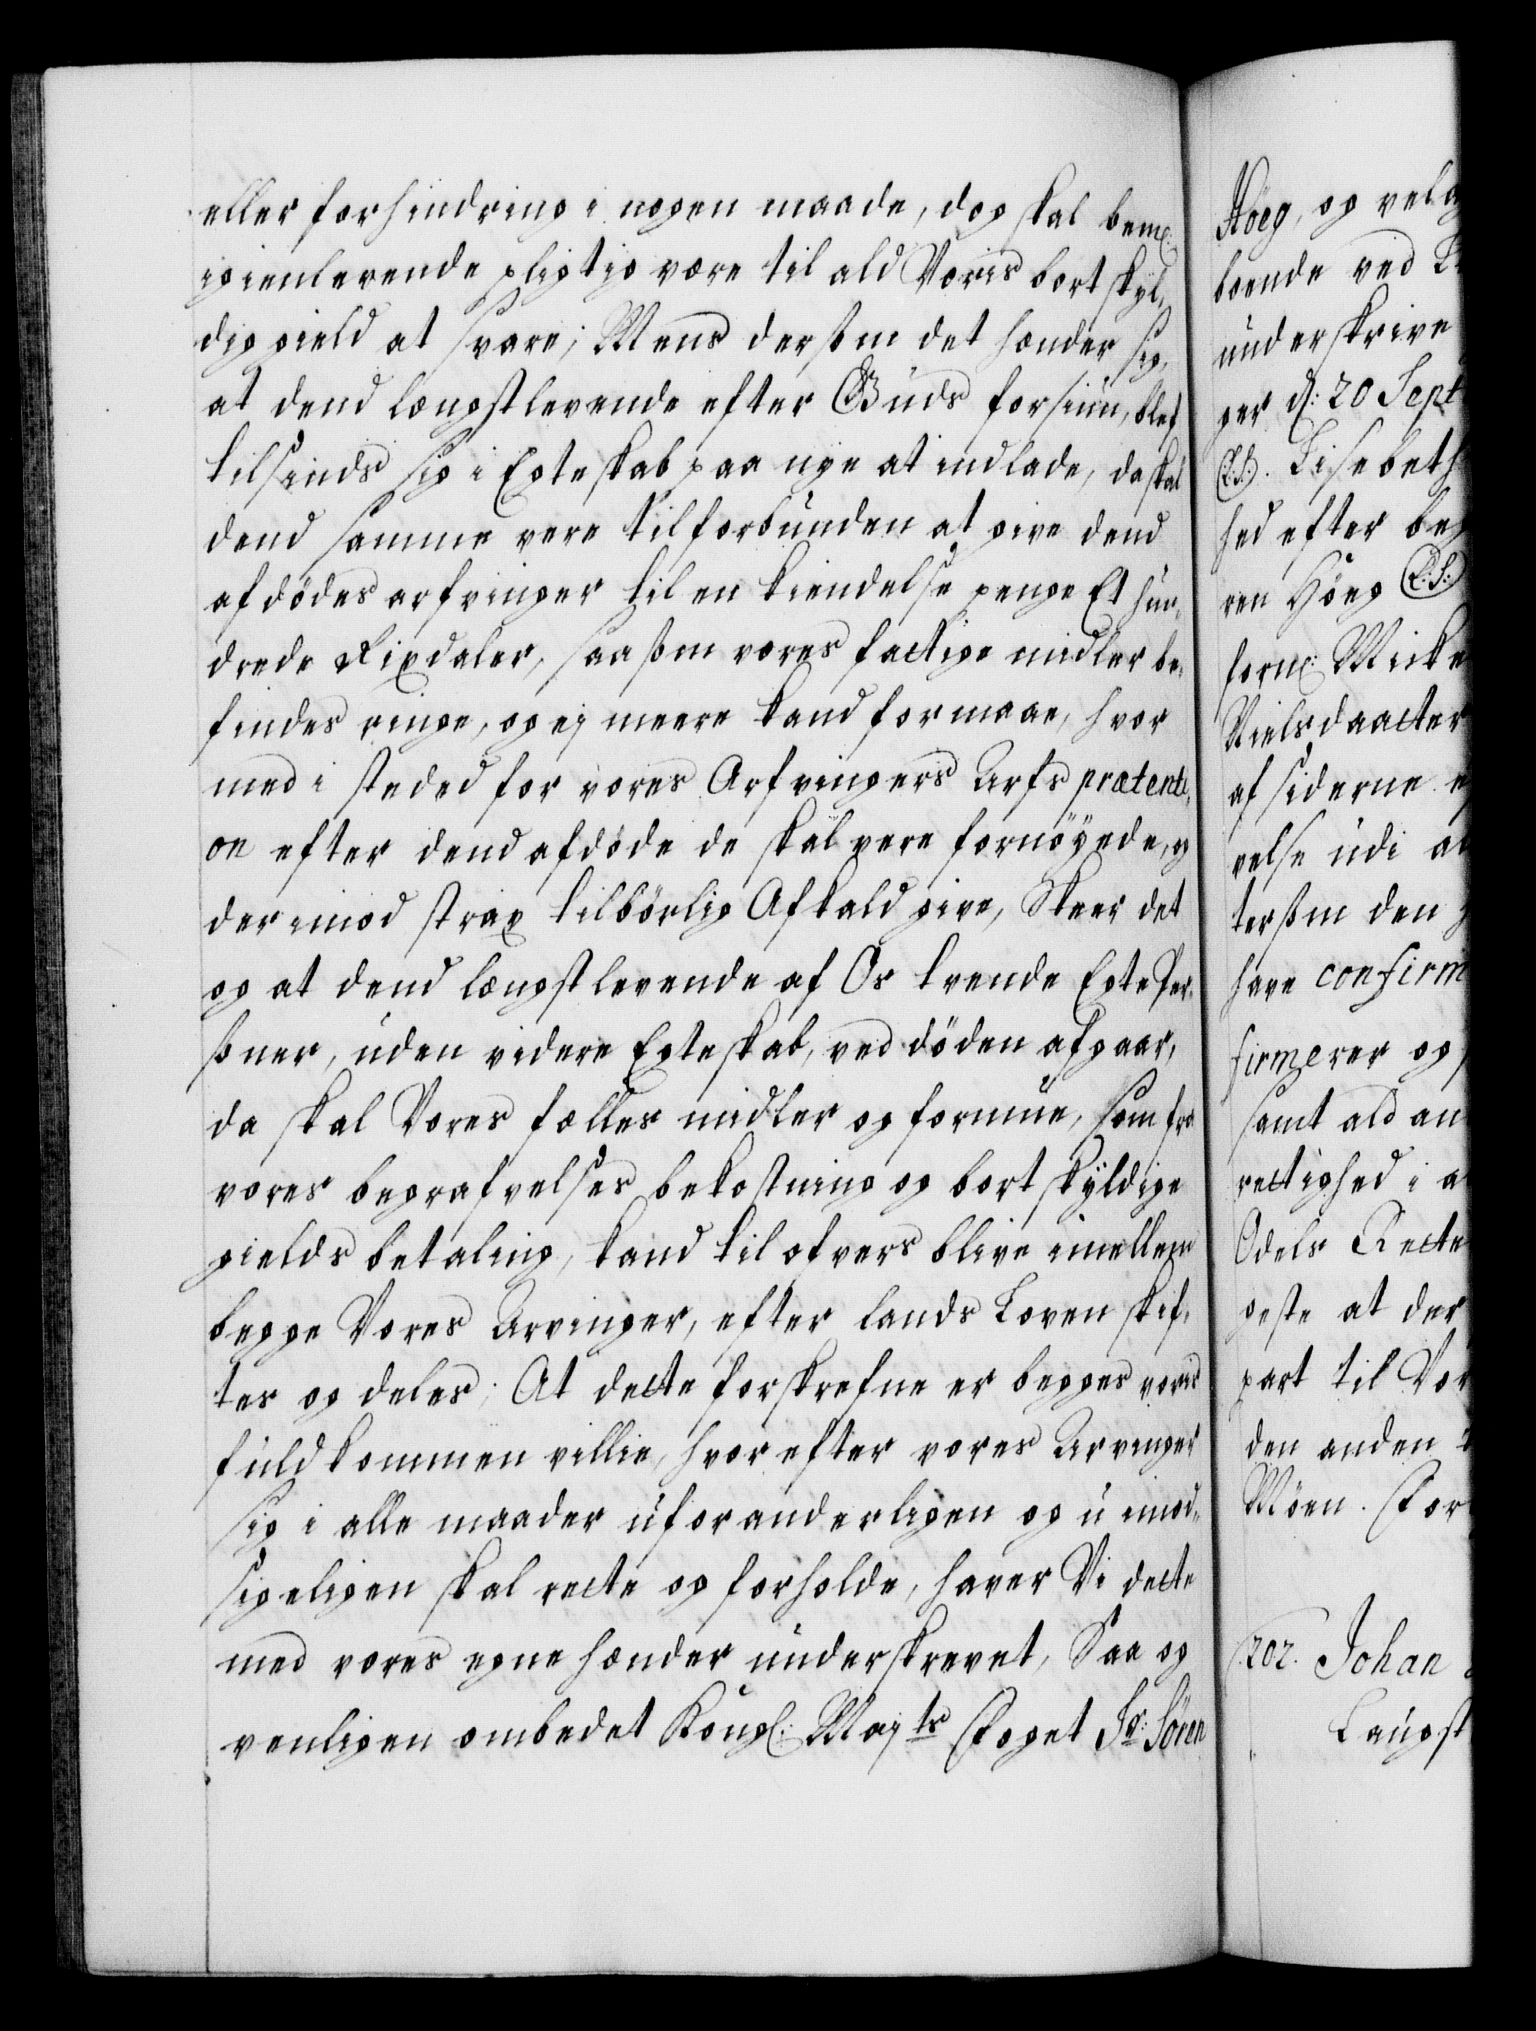 eller forhindring i nogen maade, dog skal bem:
igienlevende pligtig være til ald Voris bort skyl,
dig gield at svare; Mens dersom det hender sig,
at dend længstlevende efter Guds forsiun, blef
tilsinds sig i Egteskab paa nye at indlade, da skal
dend samme vere tilforbunden at give dend
afdødes arfvinger til en kiendelse penge Et hun,
drede Rixdaler, saasom vores fattige midler be,
findes ringe, og ej meere kand formaae, hvor
med i steded for vores Arfvingers Arfs prætenti,
on efter dend afdøde de skal vere fornøyede, og
derimod strax tilbørlig Afkald give, Skeer det
og at dend længstlevende af Os tvende Egte Per,
soner, uden videre Egteskab, ved døden afgaar,
da skal Vores fælles midler og formue, som fra
vores begrafvelses bekostning og bort skyldige
gields betaling, kand til ofvers blive imellem
begge Vores Arvinger, efter Lands Loven skif,
tes og deles; At dette forskrefne er begges voris
fuldkommen villie, hvor efter vores Arvinger
sig i alle maader uforanderligen og u imod,
sigeligen skal rette og forholde, haver Vi dette
med vores egne hænder underskrevet, Saa og
venligen ombedet Kongl: Maj:ts Foget Sr: Søren
Høeg, og vel
boende ved
underskrive
ger d: 20 Sept
(L.S.). Lisebeth
hed efter beg
ren Høeg (L.S.)
forne: Micke
Nielsdaatter
af siderne
velse udi al
tersom den
have confirm
firmerer og
samt ald an
rettighed i a
Odels Rette
geste at der
part til Vor
den anden
Møen. For
202. Johan
Laugst